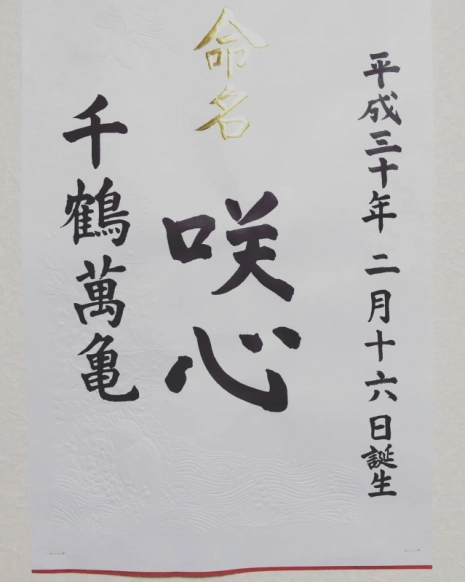 命名
平成三十年 二月十六日誕生
咲心
千鶴萬亀